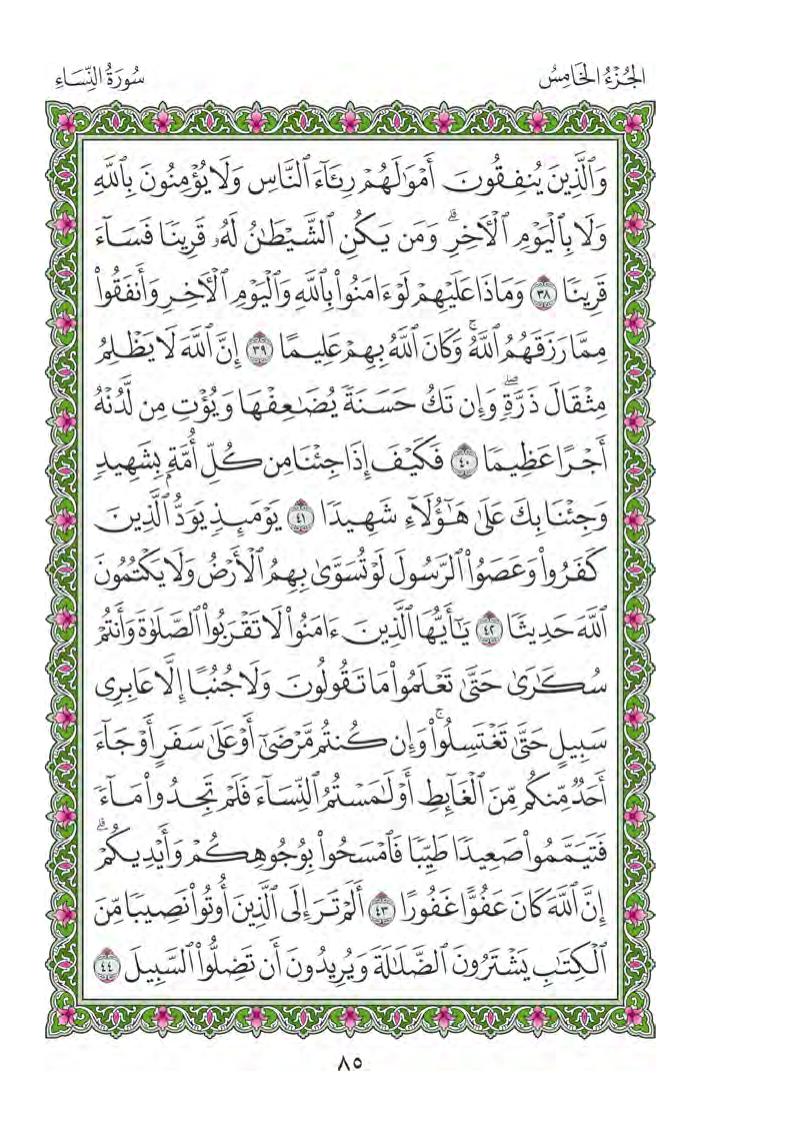 الجُزْءُ الخَامِسُ سُورَةُ النِّسَاءِ
وَٱلَّذِينَ يُنفِقُونَ أَمْوَٰلَهُمْ رِئَآءَ ٱلنَّاسِ وَلَا يُؤْمِنُونَ بِٱللَّهِ
وَلَا بِٱلْيَوْمِ ٱلْأَخِرِۗ وَمَن يَكُنِ ٱلشَّيْطَٰنُ لَهُۥ قَرِينًا فَسَآءَ
قَرِينًا ٣٨ وَمَاذَا عَلَيْهِمْ لَوْ ءَامَنُوا۟ بِٱللَّهِ وَٱلْيَوْمِ ٱلْأَخِرِ وَأَنفَقُوا۟
مِمَّا رَزَقَهُمُ ٱللَّهُۚ وَكَانَ ٱللَّهُ بِهِمْ عَلِيمًا ٣٩ إِنَّ ٱللَّهَ لَا يَظْلِمُ
مِثْقَالَ ذَرَّةٍۖ وَإِن تَكُ حَسَنَةً يُضَٰعِفْهَا وَيُؤْتِ مِن لَّدُنْهُ
أَجْرًا عَظِيمًا ٤٠ فَكَيْفَ إِذَا جِئْنَا مِن كُلِّ أُمَّةٍۭ بِشَهِيدٍ
وَجِئْنَا بِكَ عَلَىٰ هَٰٓؤُلَآءِ شَهِيدًا ٤١ يَوْمَئِذٍ يَوَدُّ ٱلَّذِينَ
كَفَرُوا۟ وَعَصَوُا۟ ٱلرَّسُولَ لَوْ تُسَوَّىٰ بِهِمُ ٱلْأَرْضُ وَلَا يَكْتُمُونَ
ٱللَّهَ حَدِيثًا ٤٢ يَٰٓأَيُّهَا ٱلَّذِينَ ءَامَنُوا۟ لَا تَقْرَبُوا۟ ٱلصَّلَوٰةَ وَأَنتُمْ
سُكَٰرَىٰ حَتَّىٰ تَعْلَمُوا۟ مَا تَقُولُونَ وَلَا جُنُبًا إِلَّا عَابِرِى
سَبِيلٍ حَتَّىٰ تَغْتَسِلُوا۟ۚ وَإِن كُنتُم مَّرْضَىٰٓ أَوْ عَلَىٰ سَفَرٍ أَوْ جَآءَ
أَحَدٌ مِّنكُم مِّنَ ٱلْغَآئِطِ أَوْ لَٰمَسْتُمُ ٱلنِّسَآءَ فَلَمْ تَجِدُوا۟ مَآءً
فَتَيَمَّمُوا۟ صَعِيدًا طَيِّبًا فَٱمْسَحُوا۟ بِوُجُوهِكُمْ وَأَيْدِيكُمْۗ
إِنَّ ٱللَّهَ كَانَ عَفُوًّا غَفُورًا ٤٣ أَلَمْ تَرَ إِلَى ٱلَّذِينَ أُوتُوا۟ نَصِيبًا مِّنَ
ٱلْكِتَٰبِ يَشْتَرُونَ ٱلضَّلَٰلَةَ وَيُرِيدُونَ أَن تَضِلُّوا۟ ٱلسَّبِيلَ ٤٤
٨٥